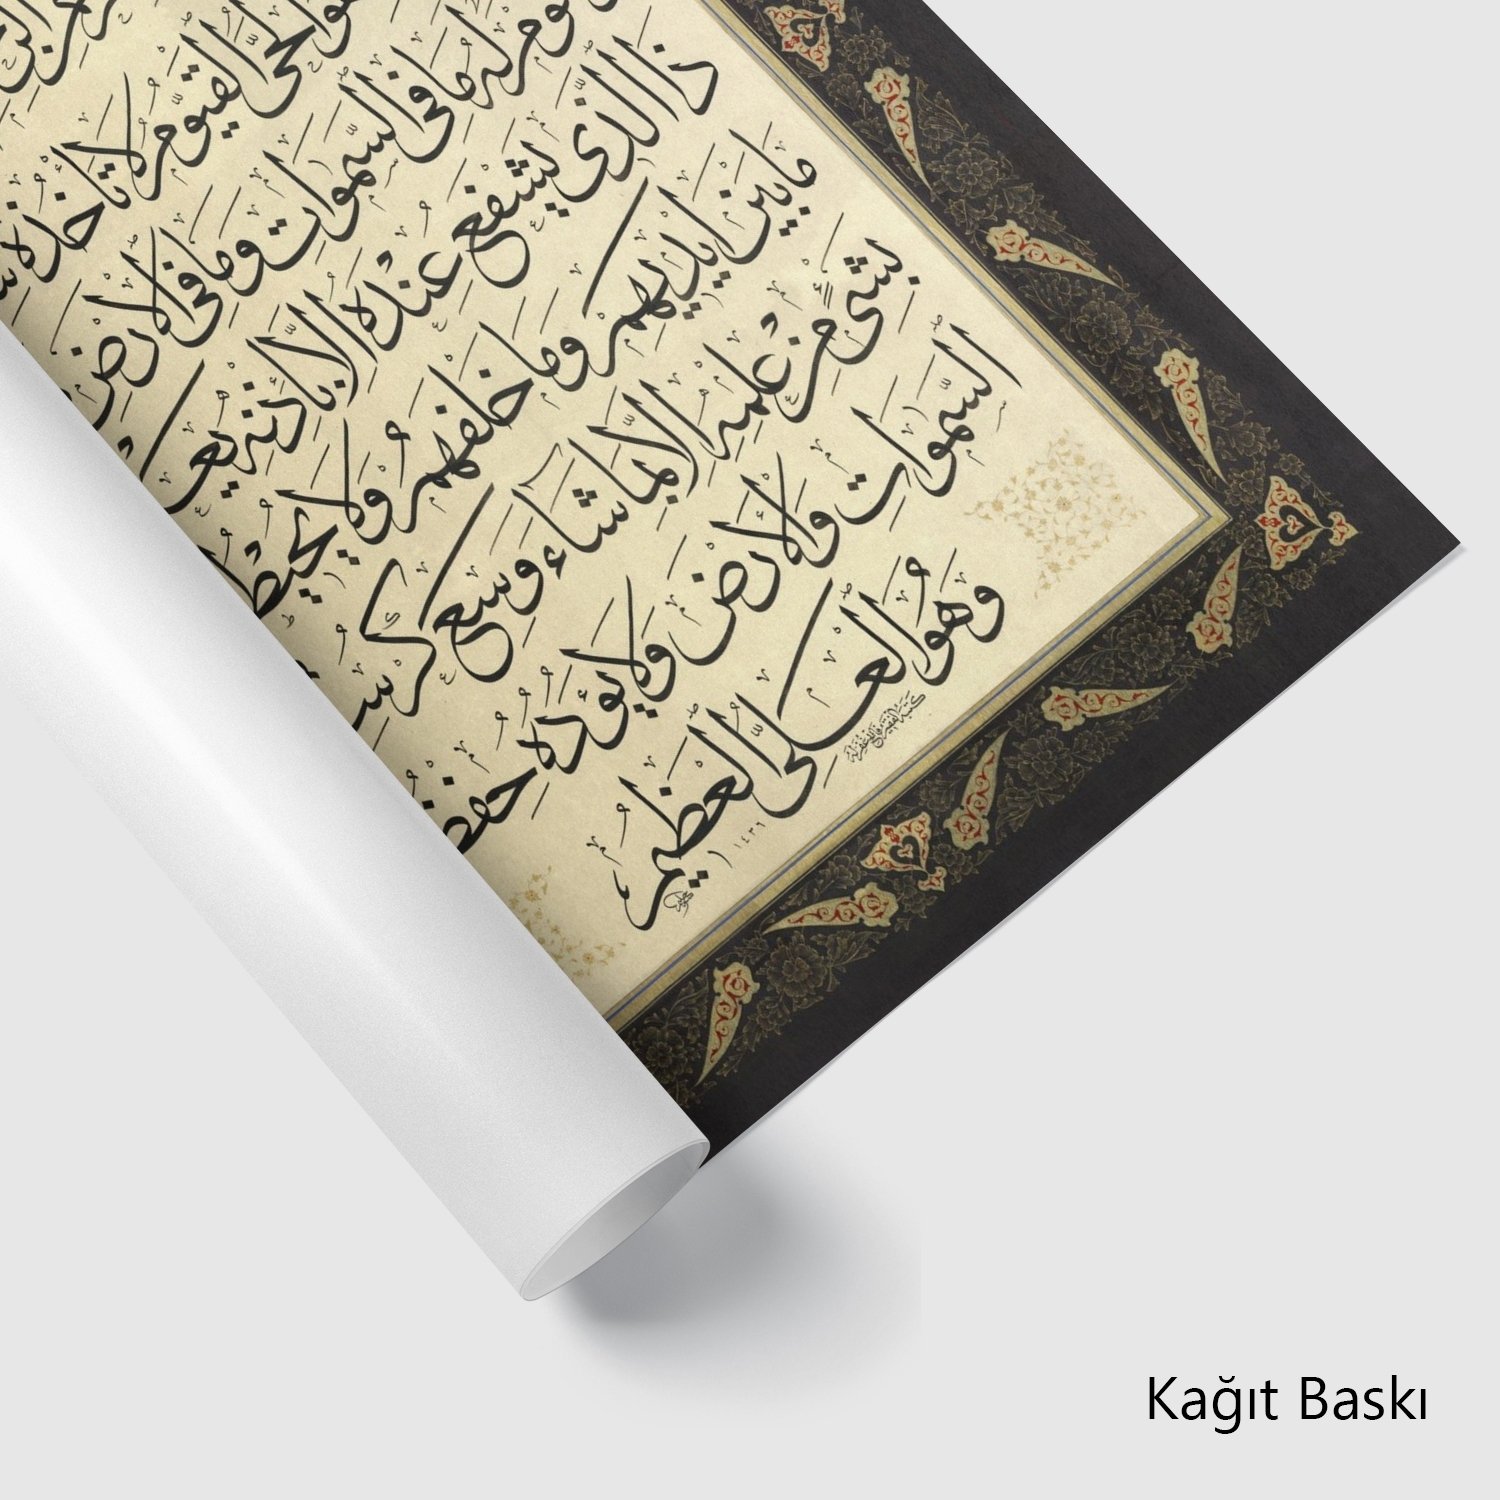 الحي القيوم لا تأخذه
له ما في السموات وما في الأرض
ذا الذي يشفع عنده إلا بإذنه يعـ
ما بين أيديهم وما خلفهم ولا يحيطـ
بشيء من علمه إلا بما شاء وسع كرسـ
السموات والأرض ولا يؤده حفظـ
وهو العلي العظيم
كتبه الفقير
١٤٣٦
Kağıt Baskı